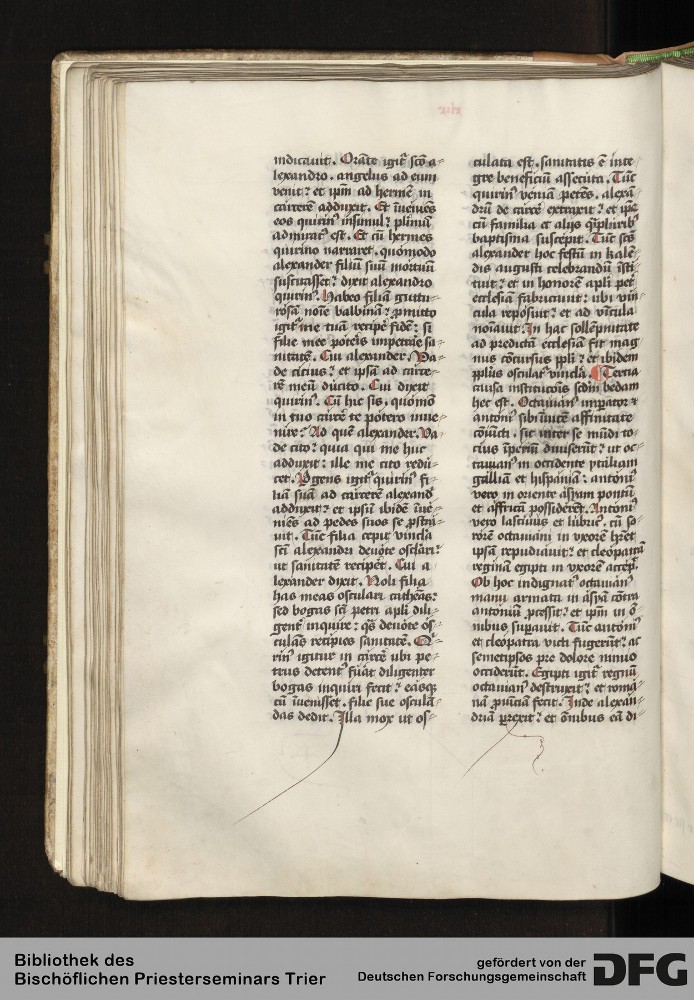 xlix
indicauit. Orāte igit᷑ scō a⸗
lexandro. angelus ad eum
venit? et ip̄m ad hermē in
carcerē adduxit. Et īueniēs
eos quirin᷒ insimul? plurimū
admirat᷒ est. Et cū hermes
quirino narraret. quomodo
alexander filiū suū mortuū
suscitasset? dixit alexandro
quirin᷒. Habeo filiā guttu⸗
rosam noīe balbinā? ꝓmitto
igit᷑ me tuā reciꝑe fidē: si
filie mee poteris impetrare sa⸗
nitatē. Cui alexander. Va⸗
de citius? et ipsā ad carce⸗
rē meū ducito. Cui dixit
quirin᷒. Cū hic sis, quomō
in tuo carcē te potero inue⸗
nire? Ad quē alexander. Va⸗
de cito? quia qui me huc
adduxit: ille me cito redu⸗
cet. Pergens igit᷑ quirin᷒ fi⸗
liā suā ad carcerē alexand᷑
adduxit? et ipsū ibidē īue⸗
niēs ad pedes suos se ꝓstra⸗
uit. Tūc filia cepit vincla
scī alexandri deuote osclari?
ut sanitatē reciꝑet. Cui a⸗
lexander dixit. Noli filia
has meas osculari cathenas:
sed bogas scī petri apl̄i dili⸗
gent᷑ inquire: q̄s deuote os⸗
culās recipies sanitatē. Qui⸗
rin᷒ igitur in carcere ubi pe⸗
trus detent᷒ fu᷑at diligenter
bogas inquiri fecit? easqꝫ
cū īuenisset. filie sue osculā⸗
das dedit. Illa mox ut os⸗
culata est. sanitatis ē inte⸗
gre beneficiū assecuta. Tūc
quirin᷒ veniā petēs. alexā⸗
drū de carcē extraxit? et ip̄e
cū familia et alijs q̄pluribꝫ
baptisma suscepit. Tūc scūs
alexander hoc festū in kalē⸗
dis augusti celebrandū īsti⸗
tuit? et in honorē apl̄i pet᷑
ecclesiā fabricauit: ubi vin⸗
cula reposuit? et ad vīcula
noīauit. In hac sollēpnitate
ad predictā ecclesiā fit mag⸗
nus cōcursus ppl̄i? et ibidem
ppl̄us osculat᷑ vincla. ¶ Tercia
causa institucōis scd̄m bedam
hec est. Octauian᷒ imꝑator ⁊
antoni᷒ sibīuicē affinitate
cōiūcti. sic inter se mūdi to⸗
cius īperiū diuiserūt? ut oc⸗
tauian᷒ in occidente ytaliam
galliam et hispaniā: antoni᷒
vero in oriente asyam pontū
et affricā possiderēt. Antoni᷒
vero lasciuus et lubric᷒. cū so⸗
rorē octauiani in vxorē hr̄et
ipsā repudiauit? et cleopatrā
reginā egipti in vxorē accep̄.
Ob hoc indignat᷒ octauian᷒
manu armata in asyā cōtra
antoniū ꝓcessit? et ip̄m in ō⸗
nibus suꝑauit. Tūc antoni᷒
et cleopatra victi fugerūt? ac
semetipsos pre dolore nimio
occiderūt. Egipti igit᷑ regnū
octauian᷒ destruxit? et roma⸗
nā ꝓuīciā fecit. Inde alexan⸗
driā ꝑrexit? et ōnibus eā di⸗
Bibliothek des
Bischöflichen Priesterseminars Trier
gefördert von der
Deutschen Forschungsgemeinschaft
DFG